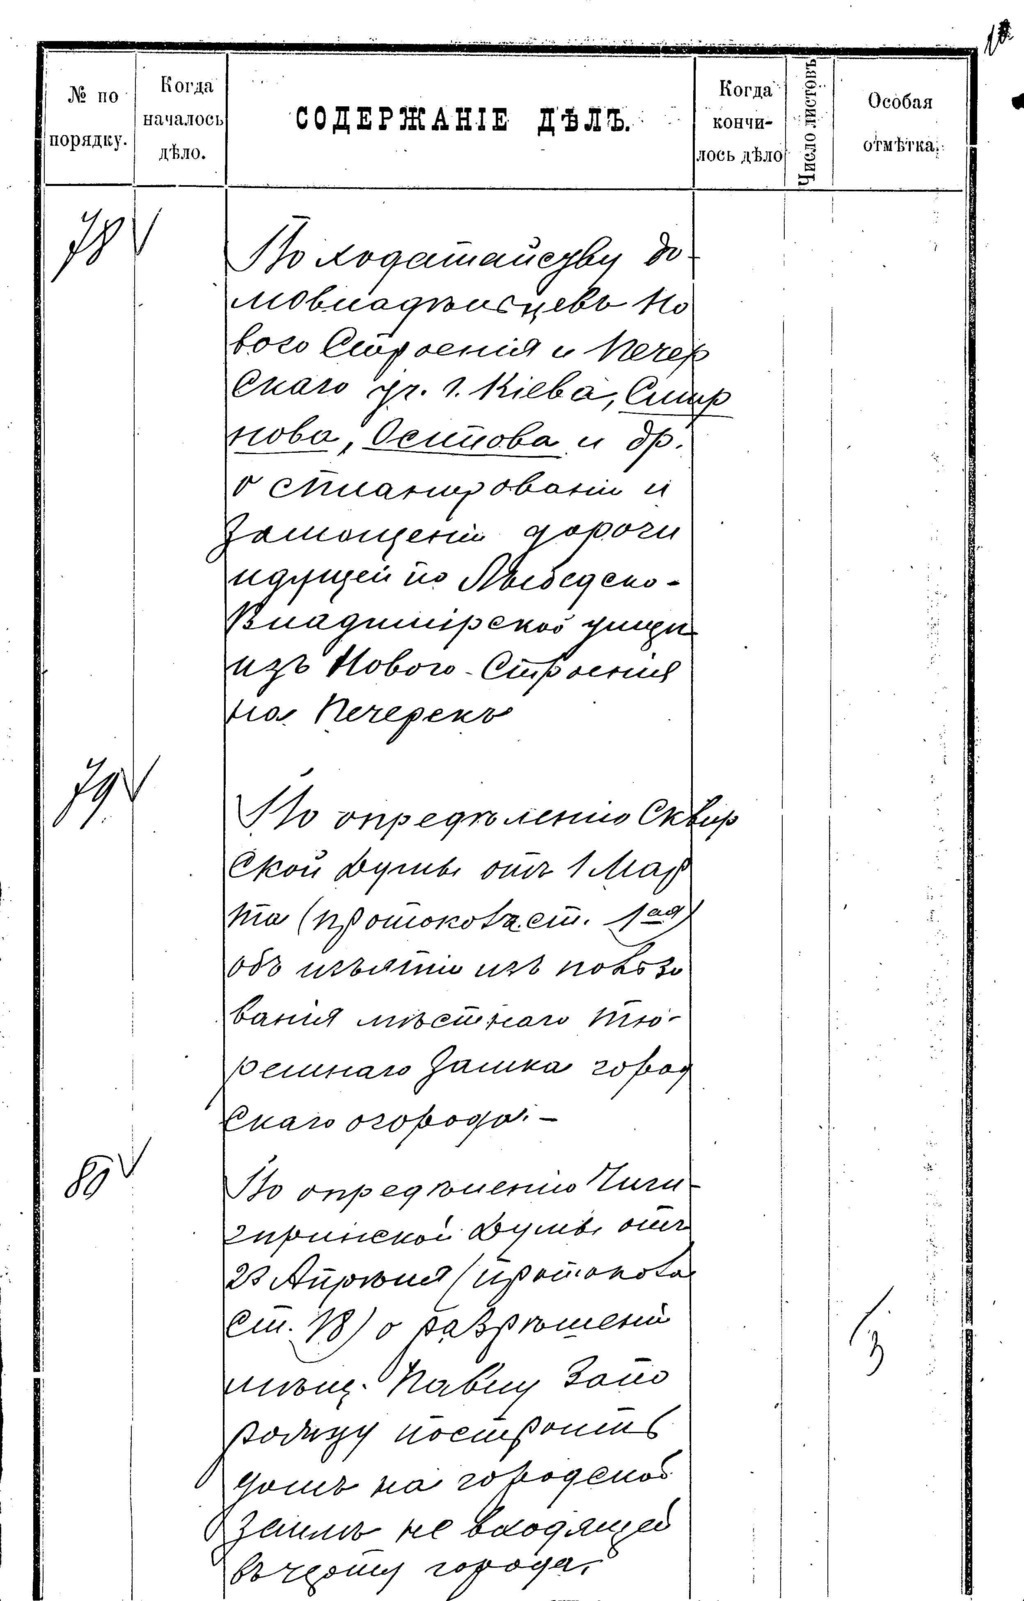 № по порядку.
Когда началось дѣло.
СОДЕРЖАНІЕ ДѢЛЪ.
Когда кончилось дѣло
Число листовъ
Особая отмѣтка.
78
По ходатайству до-
мовладѣльцевъ Но
вого Строенія и Печер
скаго уч. г. Кіева, Смир
нова, Осипова и др.
о спланированіи и
замощеніи дороги
идущей по Лыбедско-
Владимірской улицѣ
изъ Нового-Строенія
на Печерскъ
79
По опредѣленію Сквир
ской Думы отъ 1 Мар
та (протокола ст. 1ая)
объ изъятіи изъ пользо
ванія мѣстнаго тю-
ремнаго замка город
скаго огорода.-
80
По опредѣленію Чиги-
гиринской Думы отъ
23 Апрѣля (протокола
ст. 18) о разрѣшеніи
мѣщ. Павлу Запо
рожцу построить
домъ на городской
землѣ не входящей
въ черту города.
3